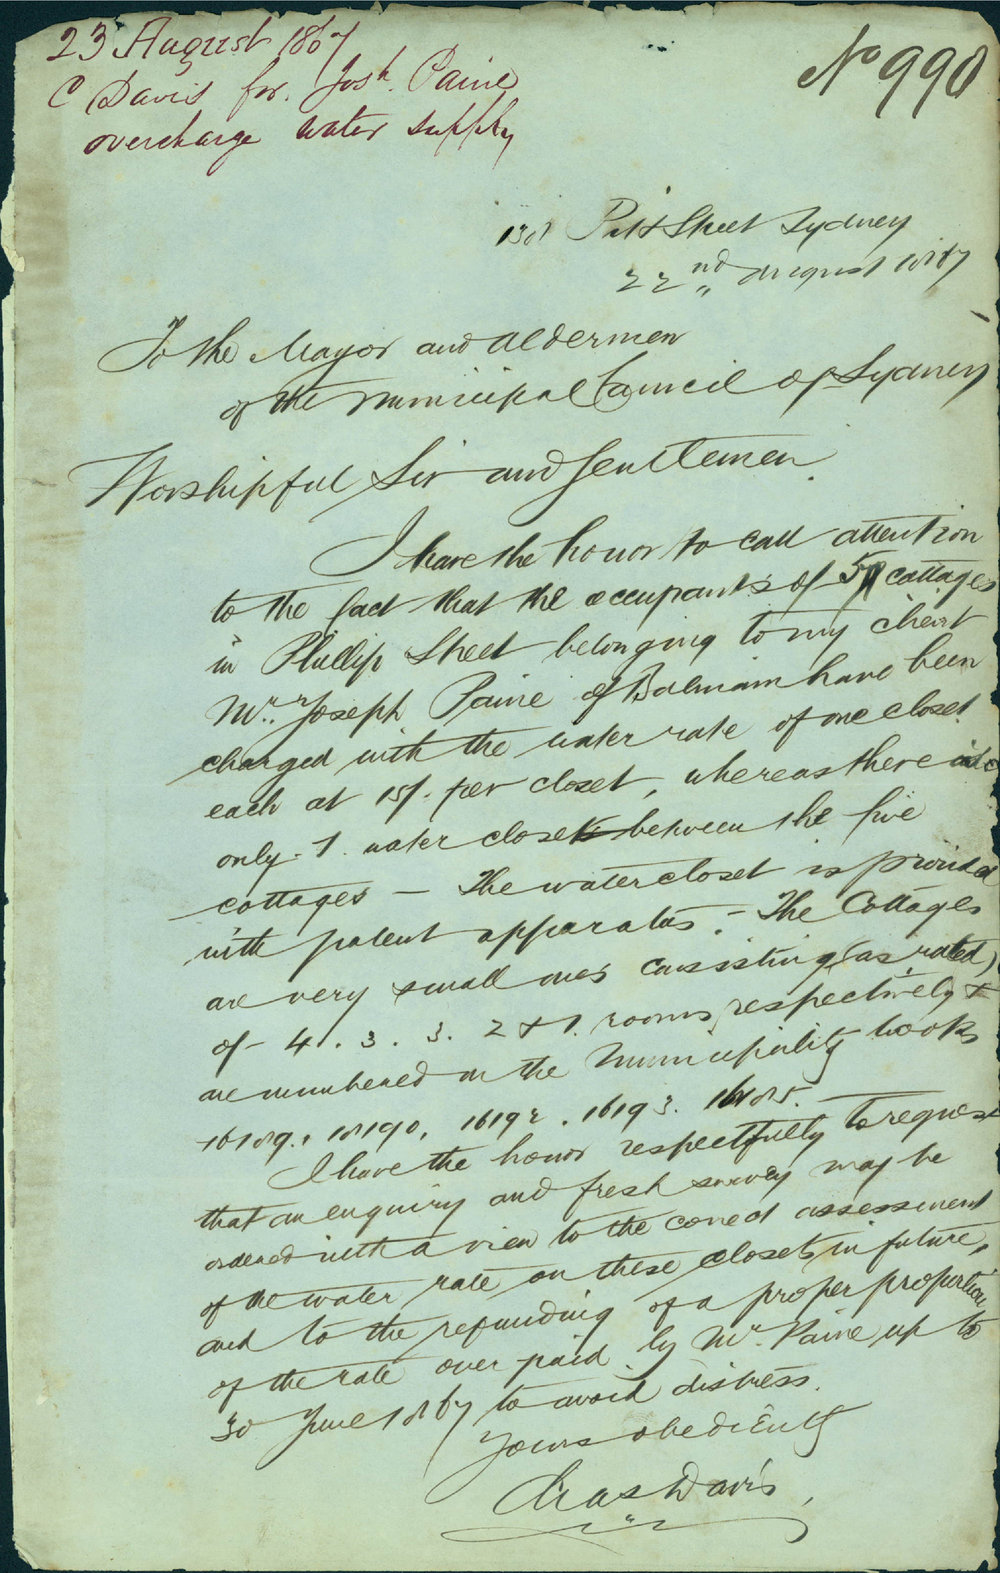 23 August 1867
C Davis for. Josh. Paine
overcharge water supply
No 990
Pitt Street Sydney
22nd August 1867
To the Mayor and Aldermen
of the Municipal Council of Sydney
Worshipful Sir and Gentlemen.
I have the honor to call attention
to the fact that the occupants of 5 cottages
in Phillip Street belonging to my client
Mr. Joseph Paine of Balmain have been
charged with the water rate of one closet
each at 15/. per closet, whereas there is
only 1 water closet between the five
cottages — The watercloset is provided
with patent apparatus. — The Cottages
are very small ones consisting (as rated)
of - 4. 3. 3. 2 & 1. rooms respectively &
are numbered on the Municipality books
16189., 18190, 16192, 16193.
I have the honor respectfully to request
that an enquiry and fresh survey may be
ordered with a view to the correct assessment
of the water rate on these closets in future,
and to the refunding of a proper proportion
of the rate over paid by Mr. Paine up to
30 June 1867 to avoid distress.
Yours obediently
Chas Davis,